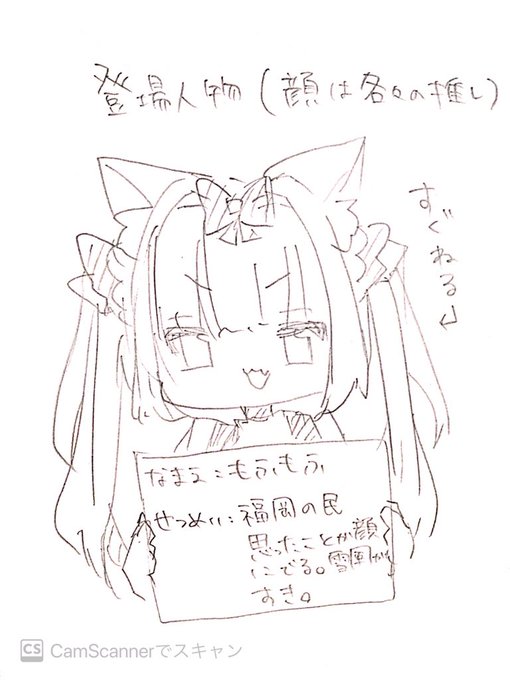 登場人物(顔は各々の推し)
すぐねる
なまえ:もふもふ
せつめい:福岡の民
思ったことが顔
にでる。雪国が
すき。
CS CamScannerでスキャン